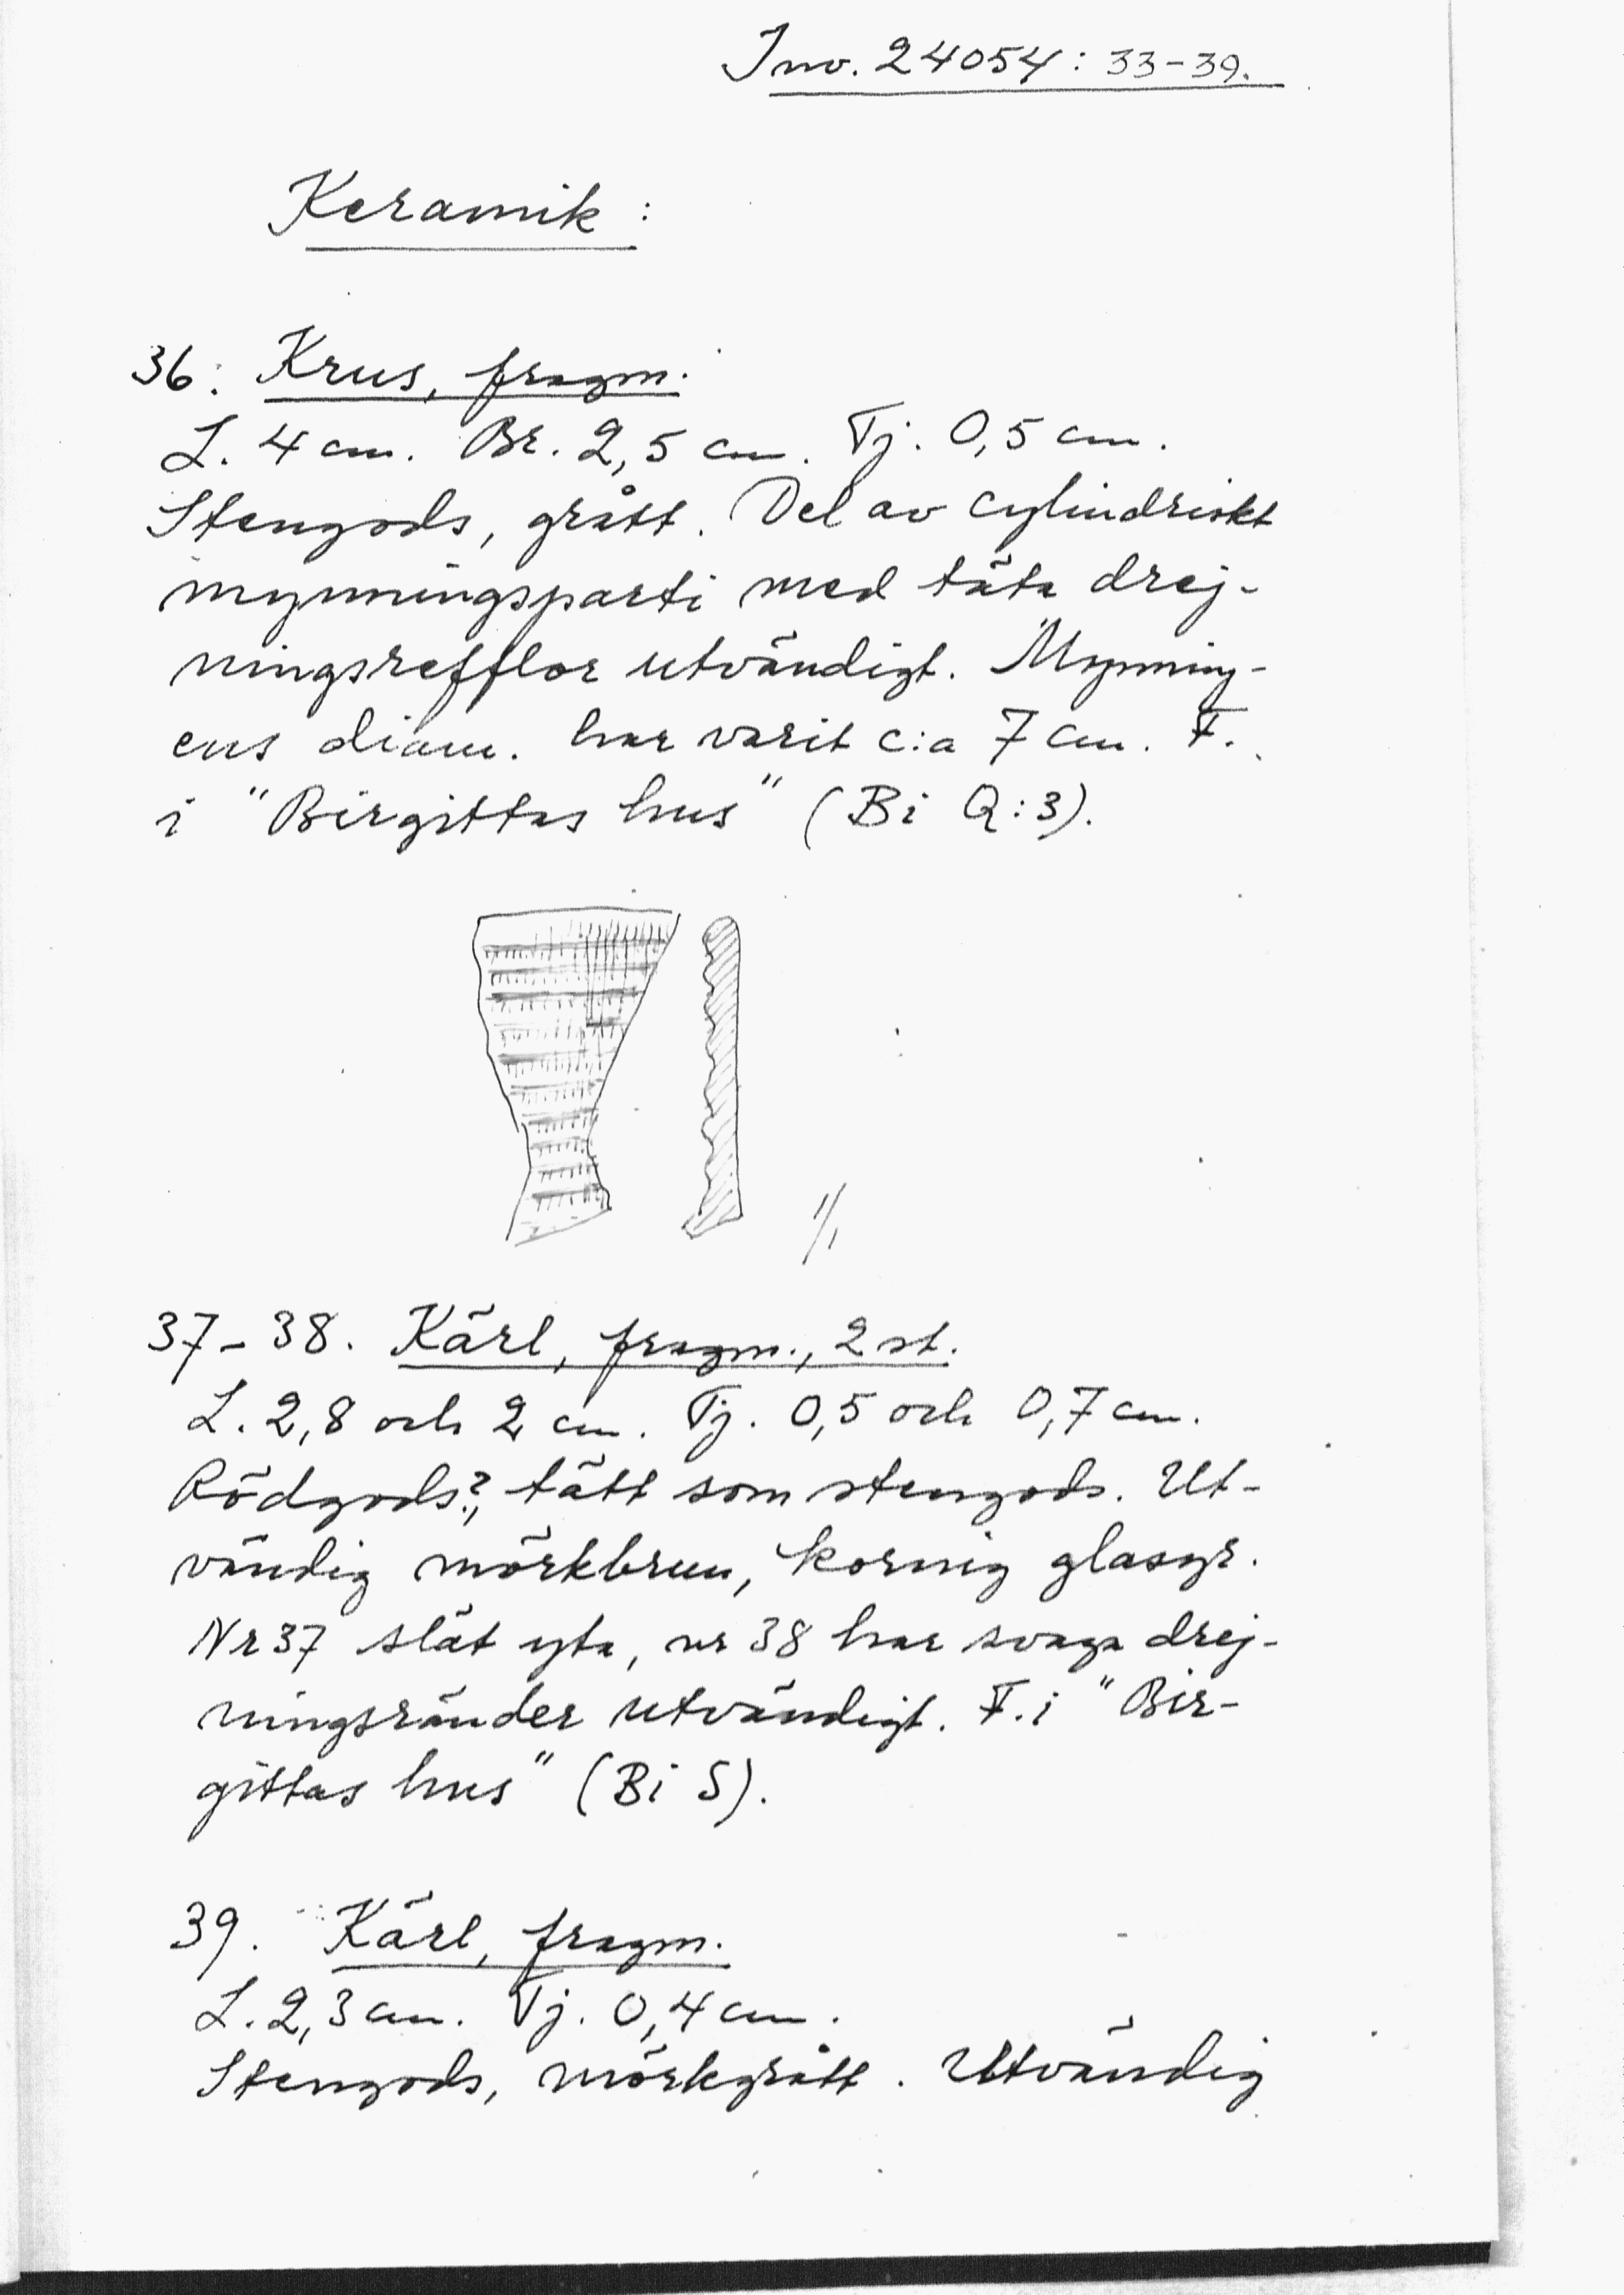 Inv. 24054: 33-39.
Keramik:
36. Krus, fragm.
L. 4 cm. Br. 2,5 cm. Tj. 0,5 cm.
Stengods, grått. Del av cylindriskt
mynningsparti med täta drej-
ningsrefflor utvändigt. Mynning-
ens diam. har varit c:a 7 cm. F.
i "Birgittas hus" (Bi Q:3).
1/1
37-38. Kärl, fragm., 2 st.
L. 2,8 och 2 cm. Tj. 0,5 och 0,7 cm.
Rödgods?, tätt som stengods. Ut-
vändig mörkbrun, kornig glasyr.
Nr 37 slät yta, nr 38 har svaga drej-
ningsränder utvändigt. F. i "Bir-
gittas hus" (Bi S).
39. Kärl, fragm.
L. 2,3 cm. Tj. 0,4 cm.
Stengods, mörkgrått. Utvändig